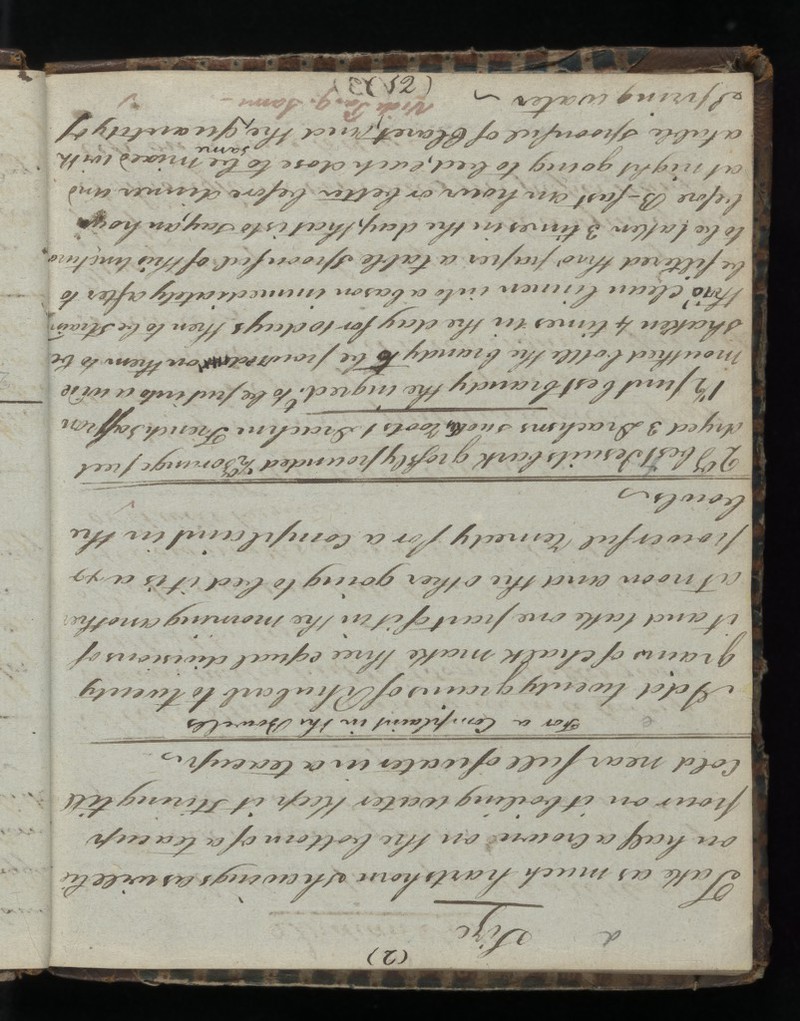 (2)
a Size
Take as much hartshorn shavings as will lie
on half a Crown on the bottom of a teacup
pour on it boiling water keep it stirring till
Cold near full of water in a teacup
For a Complaint in the Bowels
Add twenty grains of Rhubarb to twenty
grains of chalk make three equal divisions of
it and take one part of it in the morning another
at noon and the other going to bed it is a
powerful remedy for a Complaint in the
bowels
2 best Jesuits bark grossly pounded Orange peel
dryed 3 Drachms snake roots 1 Drachm French Saffron
1½ pint best brandy the ingred.ts to be put into a wide
mouthed bottle the brandy to be poured on them to be
shaken 4 times in the day for 10 days then to be strain
thro' clean linnen into a bason immediately after to
be filtered thro' paper a table spoonful of this tincture
to be taken 3 times in the day, that is to say, an hour
before B-fast an hour or better before dinner and
at night going to bed, each dose to be mixed with
a table spoonful of Claret, and the same quantity of
Spring water
(52)